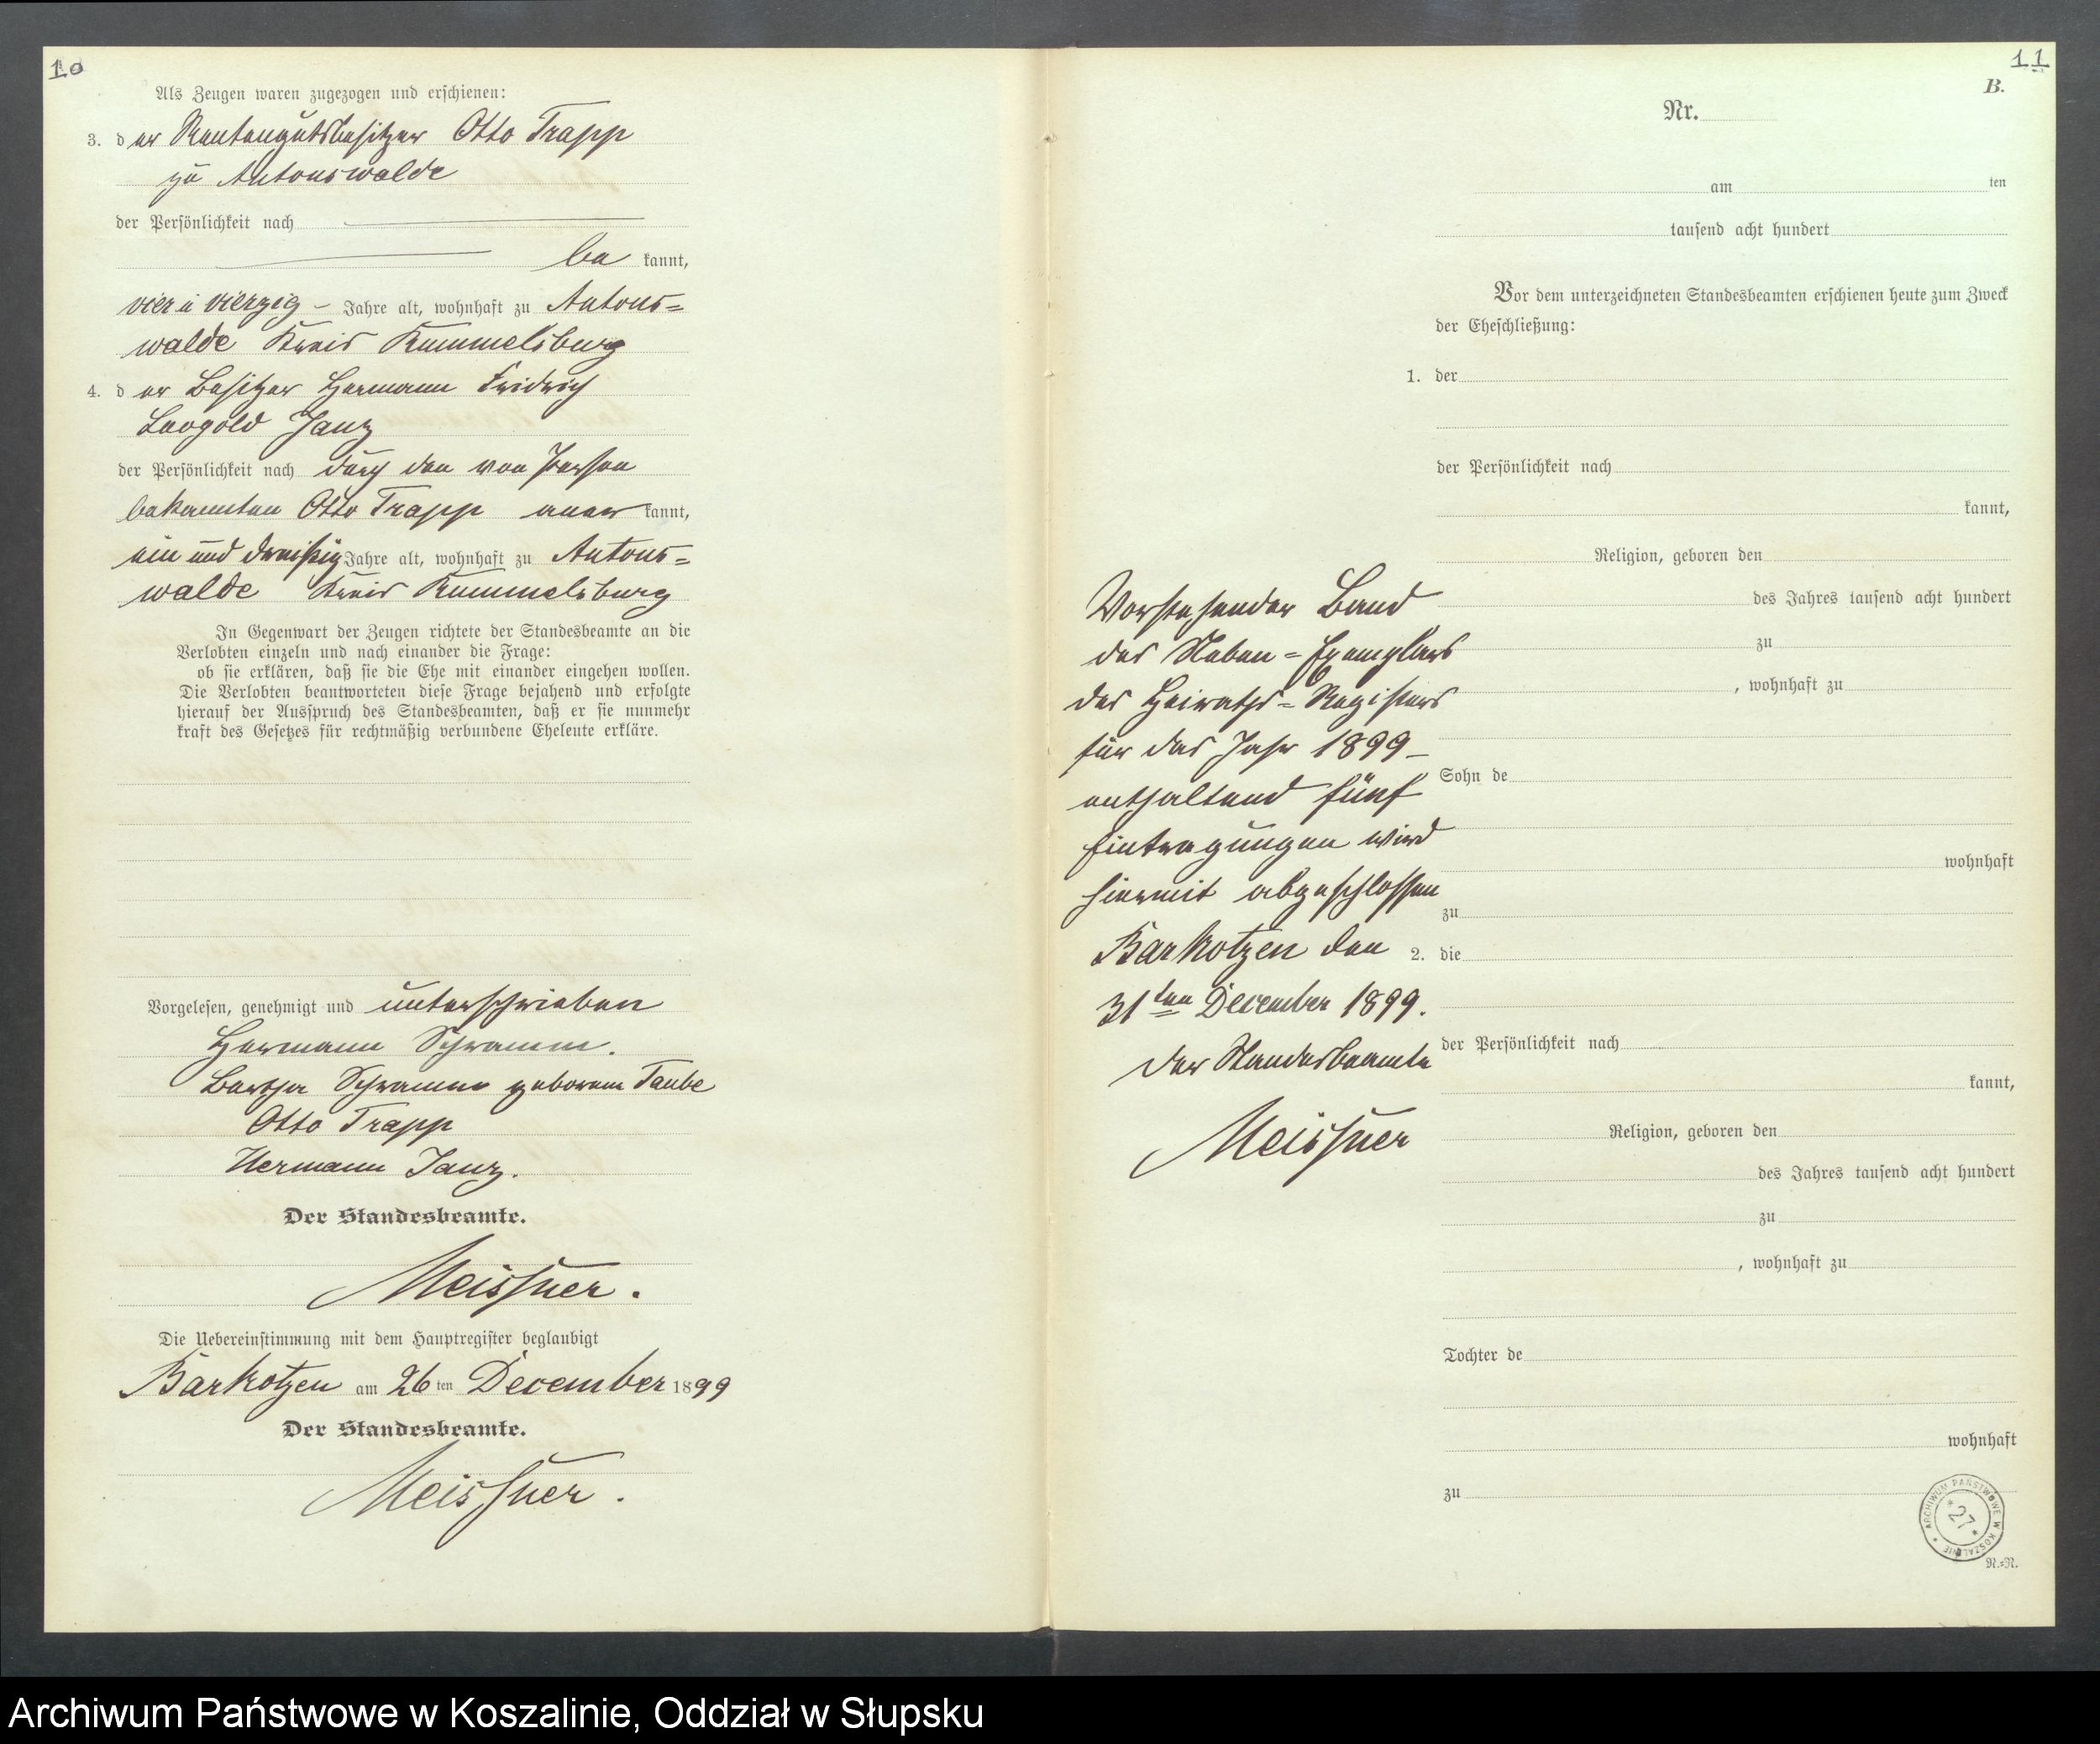 10
Als Zeugen waren zugezogen und erschienen:
3. der Rentengutsbesitzer Otto Trapp
zu Antonswalde
der Persönlichkeit nach
bekannt,
vier u vierzig – Jahre alt, wohnhaft zu Antons=
walde Kreis Rummelsburg
4. der Besitzer Hermann Fridrich
Leopold Janz
der Persönlichkeit nach durch den von Person
bekannten Otto Trapp anerkannt,
ein und dreißig Jahre alt, wohnhaft zu Antons=
walde Kreis Rummelsburg
In Gegenwart der Zeugen richtete der Standesbeamte an die
Verlobten einzeln und nach einander die Frage:
ob sie erklären, daß sie die Ehe mit einander eingehen wollen.
Die Verlobten beantworteten diese Frage bejahend und erfolgte
hierauf der Ausspruch des Standesbeamten, daß er sie nunmehr
kraft des Gesetzes für rechtmäßig verbundene Eheleute erkläre.
Vorgelesen, genehmigt und unterschrieben
Hermann Schramm.
Bertha Schramm geborene Taube
Otto Trapp
Hermann Janz.
Der Standesbeamte.
Meissner.
Die Uebereinstimmung mit dem Hauptregister beglaubigt
Barkotzen am 26ten December 1899
Der Standesbeamte.
Meissner.
11
B.
Nr.
am ten
tausend acht hundert
Vor dem unterzeichneten Standesbeamten erschienen heute zum Zweck
der Eheschließung:
1. der
der Persönlichkeit nach
kannt,
Religion, geboren den
des Jahres tausend acht hundert
zu
, wohnhaft zu
Sohn de
wohnhaft
zu
2. die
der Persönlichkeit nach
kannt,
Religion, geboren den
des Jahres tausend acht hundert
zu
, wohnhaft zu
Tochter de
wohnhaft
zu
Vorstehender Band
des Neben=Exemplars
des Heiraths=Registers
für das Jahr 1899 –
enthaltend fünf
Eintragungen wird
hiermit abgeschlossen
Barkotzen den
31ten December 1899.
Der Standesbeamte
Meissner
ARCHIWUM PAŃSTWOWE W KOSZALINIE
* 27 *
N.=N.
Archiwum Państwowe w Koszalinie, Oddział w Słupsku